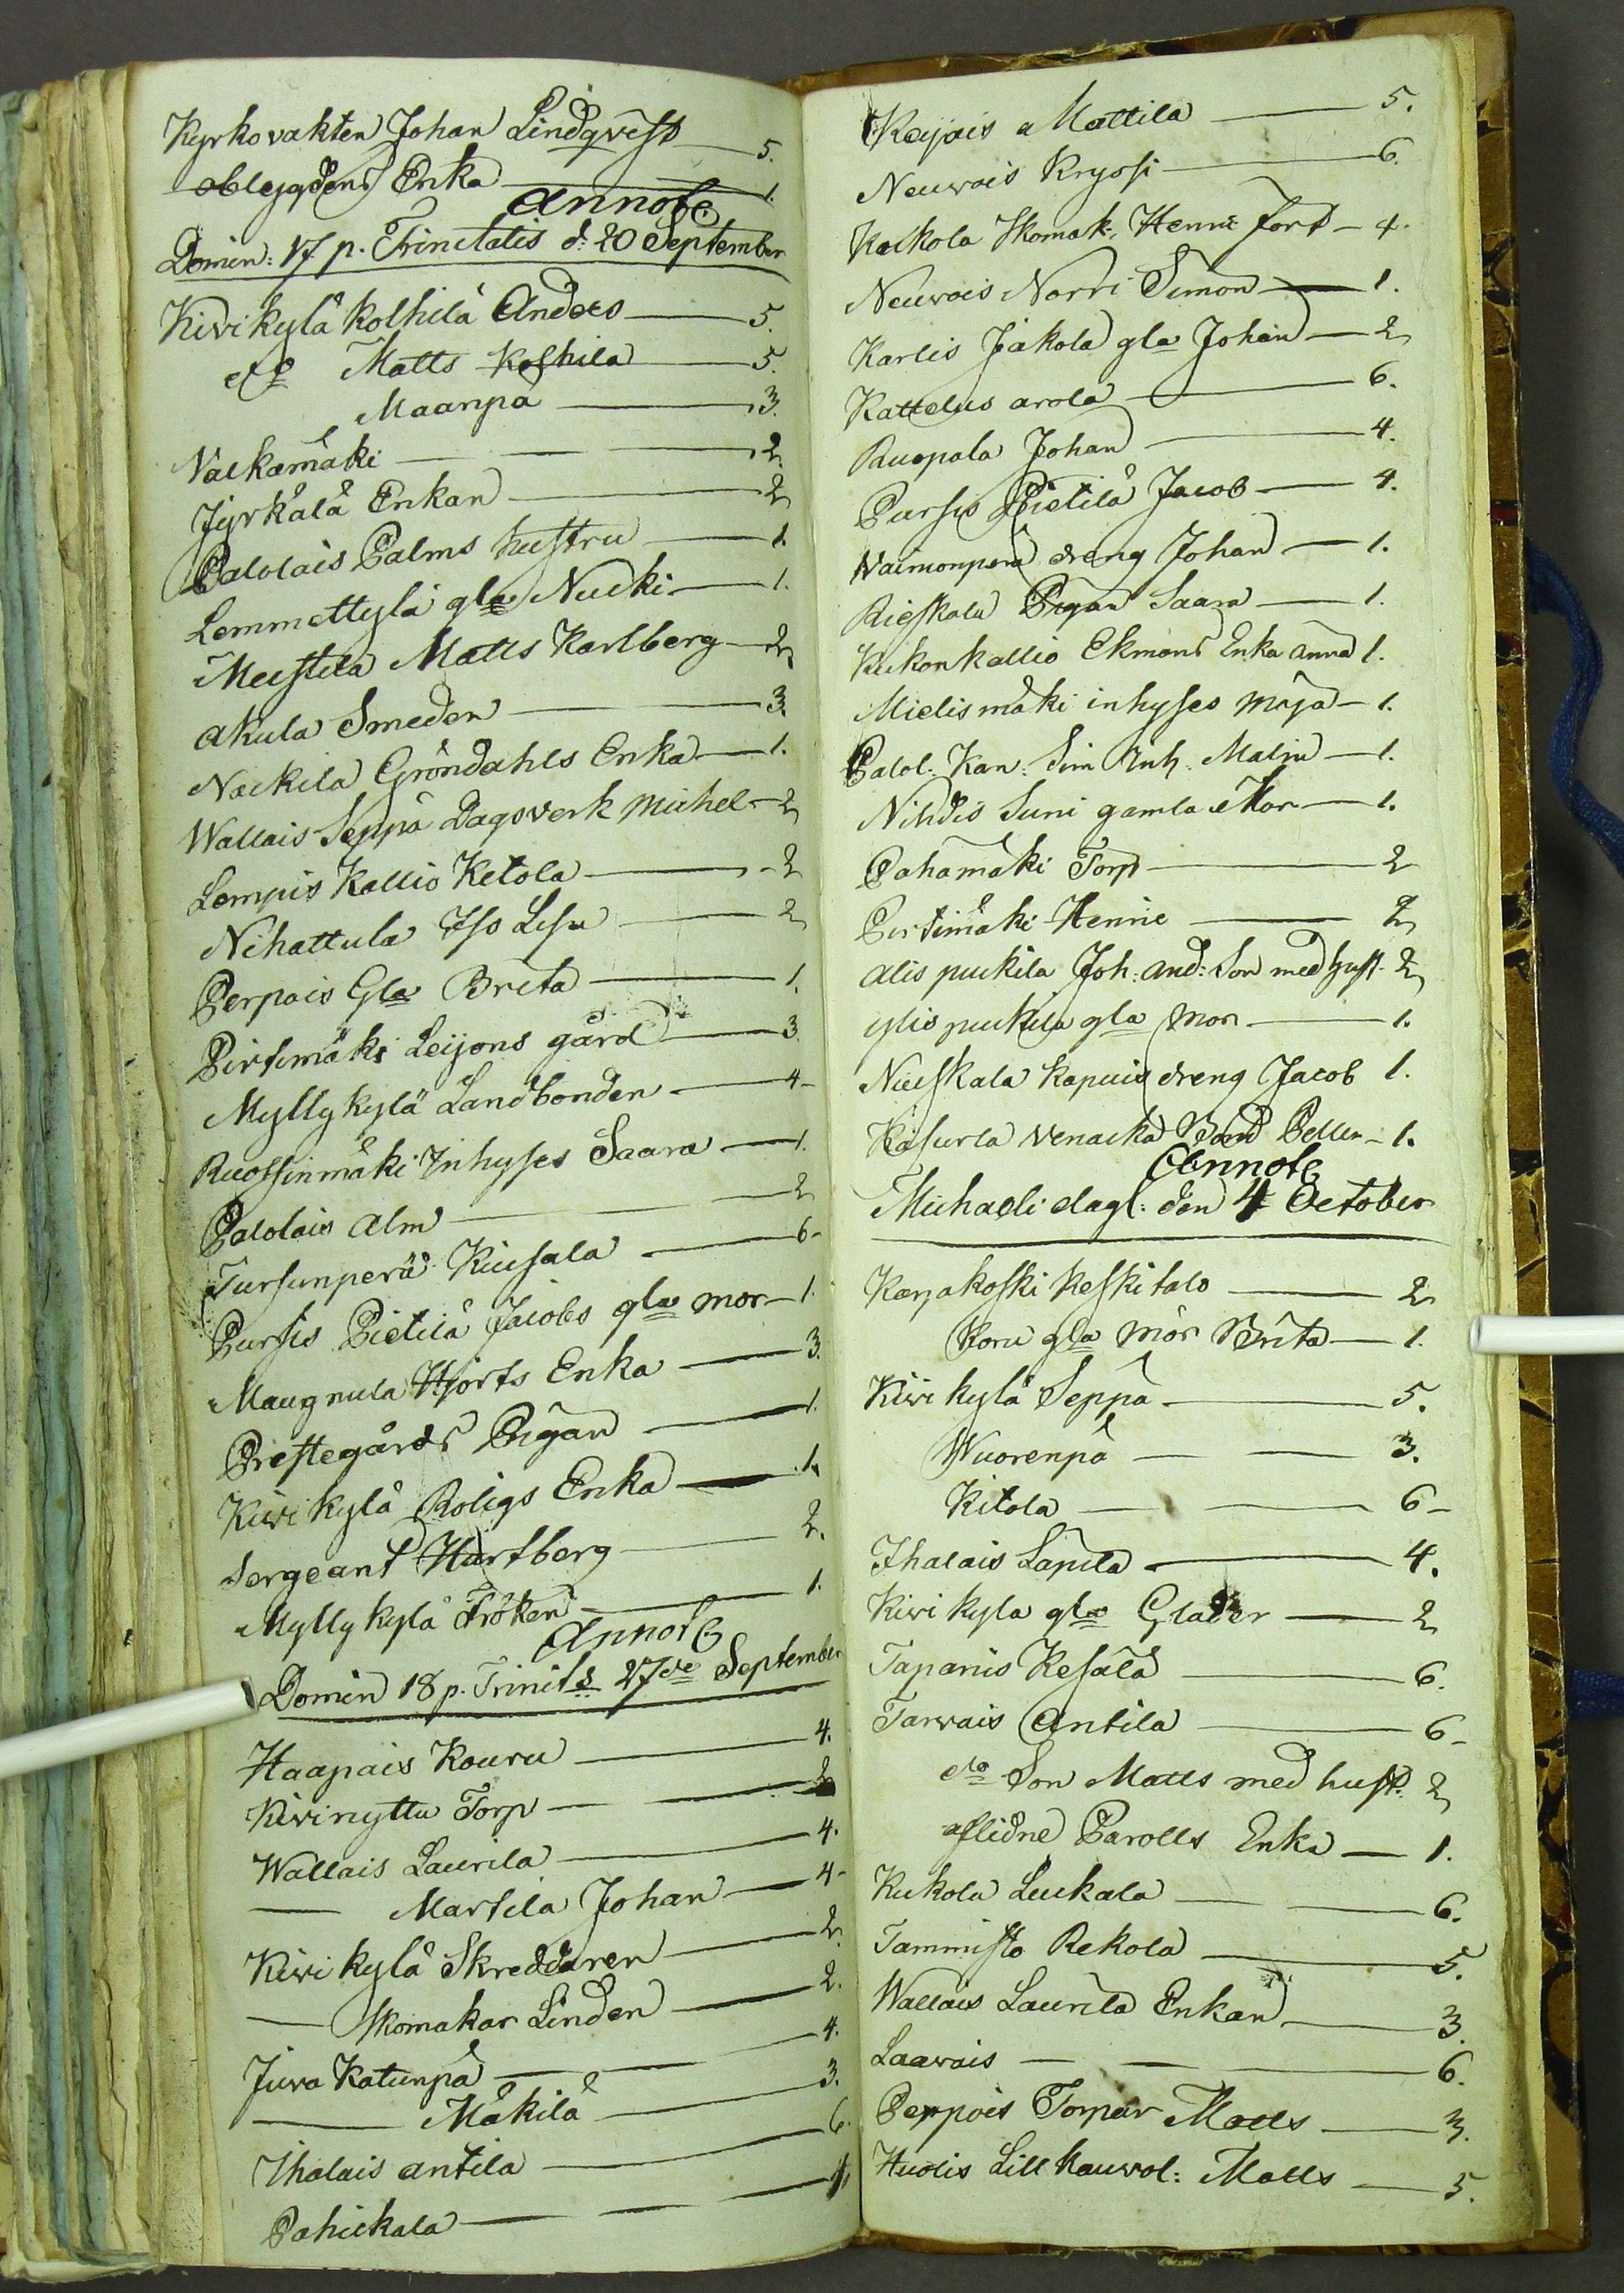 Kyrkovakten Johan Lindqvist — 5.
oblygdens Enka — 1.
Annote
Domin: 17 p. Trinitatis d: 20 September
Kivikylä Kolhilä Anders — 5.
do Matts Kolhila — 5.
Maanpä — 3.
Valkamäki — 2.
Jyrkälä Enkan — 2
Palolais Palms hustru — 1.
Lemmettylä gla Nucki — 1.
Mustila Matts Karlberg — 2
Akula Smeden — 3.
Nackila Gröndahls Enka — 1.
Wallais Seppä Dagsverk Michel — 2
Lempis Kallio Ketola — 2
Nihattula Iso Lisu — 2
Perpois Gla Brita — 1.
Pirtimäki Leijons gård — 3.
Myllykylä Landbonden — 4
Ruossinmäki Inhyses Saara — 1.
Palolais Alm — 2
Tursunperä Kiusala — 6
Pursis Pietilä Jacobs gla mor — 1.
Maugnula Hjorts Enka — 3.
Prestegårds Pigan — 1.
Kivikylä Roligs Enka — 1.
Sergeant Hartberg — 2.
Myllykylä Fröken — 1.
Annote
Domin 18 p. Trinits 27de September
Haapais Kouru — 4.
Kivinyttu Torp — 2
Wallais Laurila — 4.
— Martila Johan — 4
Kivikylä Skreddaren — 2.
— Skomakar Linden — 2.
Juva Katunpä — 4.
— Mäkilä — 3.
Ihalais Antila — 6.
Pahikkala —
Keijais Mattila — 5.
Neuvois Kryssi — 6.
Kalkola Skomak: Henric Fort — 4.
Neuvois Norri Simon — 1.
Karlis Jakola gla Johan — 2
Kattelus Arola — 6.
Ruopala Johan — 4.
Pursis Pietilä Jacob — 4.
Vaimonperä dreng Johan — 1.
Rieskala Pigan Saara — 1.
Kukonkallio Ekmans Enka Anna 1.
Mielismäki inhyses Maja — 1.
Palol: Kan: Sim Inh. Malin — 1.
Nihdis Suni gamla Mor — 1.
Pahamäki Torp — 2
Pirtimäki Henric — 2
Alis puckila Joh: And: Son med hust. 2
ylis puckila gla Mor — 1.
Niuskala Kapuis dreng Jacob 1.
Käsurla Venacka Bond Pellin — 1.
Annote
Michaeli dagl: den 4 October
Karjakoski Keskitalo — 2
Koru gla Mor Brita — 1.
Kivikylä Seppä — 5.
Wuorenpä — 3.
Kitola — 6
Ihalais Lapila — 4.
Kivikyla gla Glader — 2
Tapanis Kesälä — 6.
Tarvais Antila — 6
do Son Matts med hust. 2
aflidne Parolls Enka — 1.
Kukola Luckala — 6.
Tammisto Rekola — 5.
Wallais Laurila Enkan — 3.
Laavais — 6.
Perpois Torpar Matts — 3.
Huolis Lill Kauvol: Matts — 5.